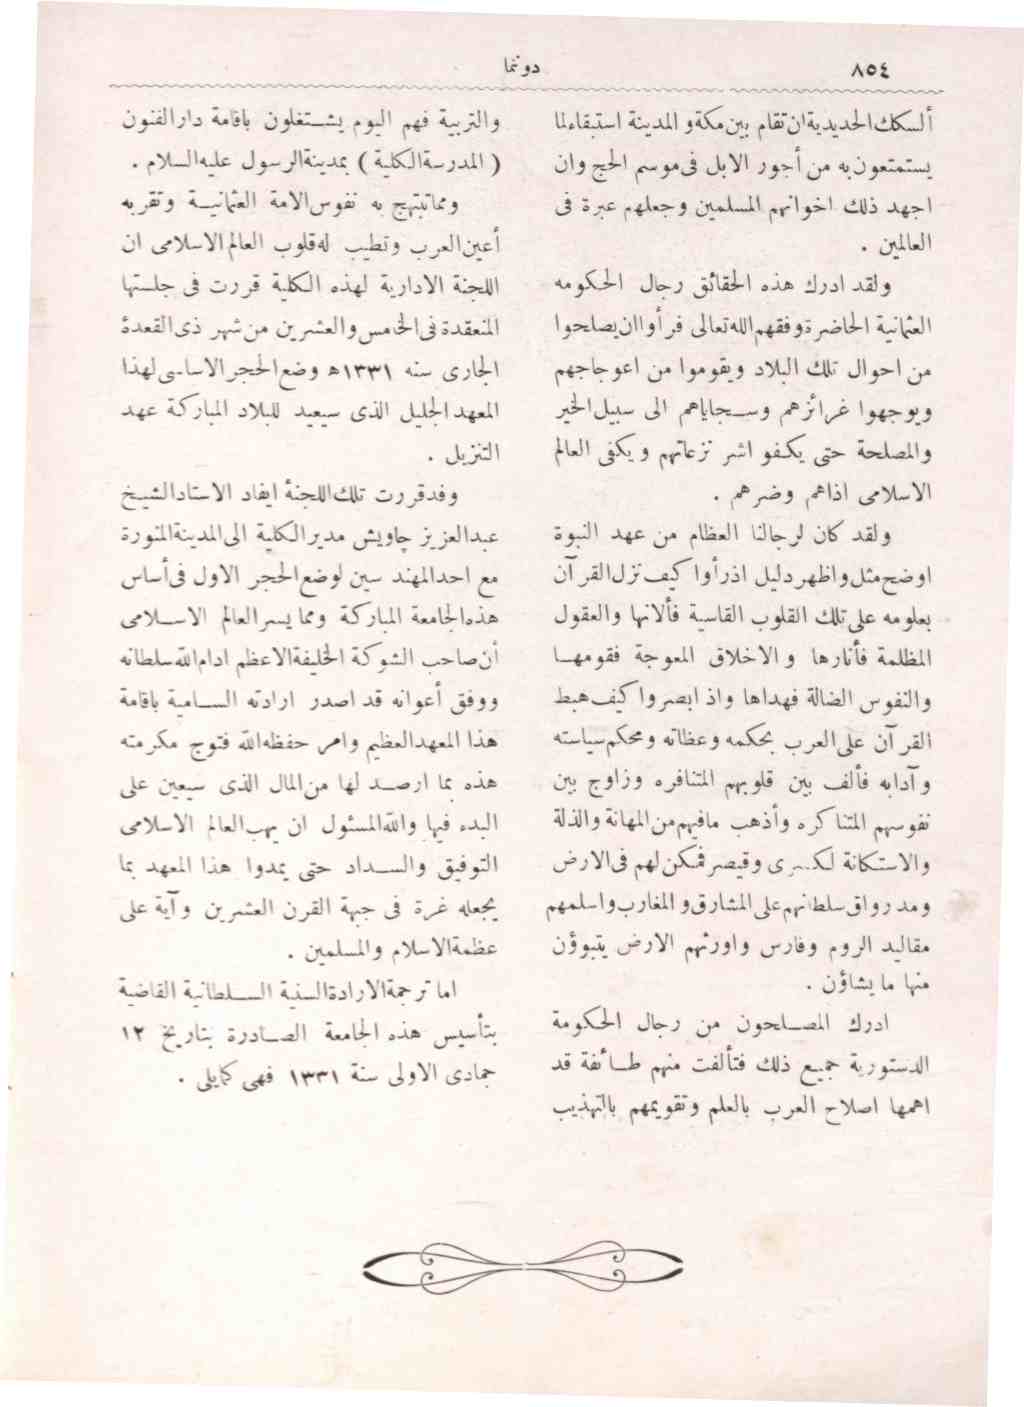 ٨٥٤
دونما
ألسكك الحديدية ان تقام بين مكة و المدينة استبقاء لما
يستمتعون به من أجور الابل فى موسم الحج وان
اجهد ذلك اخوانهم المسلمين وجعلهم عبرة فى
العالمين .
ولقد ادرك هذه الحقائق رجال الحكومه
العثمانية الحاضرة وفقهم الله تعالى فرأوا ان يصلحوا
من احوال تلك البلاد ويقوموا من اعوجاجهم
ويوجهوا غرائزهم وسـجاياهم الى سبيل الخير
والمصلحة حتى يكفو اشر نزعاتهم ويكفى العالم
الاسلامى اذاهم وضرهم .
ولقد كان لرجالنا العظام من عهد النبوة
اوضح مثل واظهر دليل اذ رأوا كيف نزل القرآن
بعلومه على تلك القلوب القاسية فألانها والعقول
المظلمة فأنارها و الاخلاق المعوجة فقومهـا
والنفوس الضالة فهداها واذ ابصروا كيف هبط
القرآن على العرب بحكمه وعظاته ومحكم سياسته
وآدابه فألف بين قلوبهم المتنافره وزاوج بين
نفوسهم المتناكره وأذهب مافيهم من المهانة والذلة
والاستكانة لكسرى وقيصر فمكن لهم فى الارض
ومد رواق سلطانهم على المشارق و المغارب واسلمهم
مقاليد الروم وفارس واورثهم الارض يتبوؤن
منها ما يشاؤن .
ادرك المصـلحون من رجال الحكومة
الدستورية جميع ذلك فتألفت منهم طـائفة قد
اهمها اصلاح العرب بالعلم وتقويمهم بالتهذيب
والتربية فهم اليوم يشـتغلون باقامة دار الفنون
( المدرسة الكلية ) بمدينة الرسول عليه السـلام .
ومما تبتهج به نفوس الامة العثمانيـة وتقر به
أعين العرب وتطيب له قلوب العالم الاسلامى ان
اللجنة الادارية لهذه الكلية قررت فى جلستها
المنعقدة فى الخامس والعشرين من شهر ذى القعدة
الجارى سنه ١٣٣١ﻫ وضع الحجر الاساسى لهذا
المعهد الجليل الذى سيعيد للبلاد المباركة عهد
التنزيل .
وقدقررت تلك اللجنة ايفاد الاستاد الشيخ
عبدالعزيز چاويش مدير الكلية الى المدينة المنورة
مع احد المهندسين لوضع الحجر الاول فى أساس
هذه الجامعة المباركة ومما يسر العالم الاسـلامى
أن صاحب الشوكة الخليفة الاعظم ادام الله سلطانه
ووفق أعوانه قد اصدر ارادته السـامية باقامة
هذا المعهد العظيم وامر حفظه الله فتوج مكرمته
هذه بما ارصـد لها من المال الذى سيعين على
البدء فيها والله المسئول ان يهب العالم الاسلامى
التوفيق والسـداد حتى يمدوا هذا المعهد بما
يجعله غرة فى جبهة القرن العشرين وآية على
عظمة الاسلام والمسلمين .
اما ترجمة الارادة السنية السـلطانية القاضية
بتأسيس هذه الجامعة الصـادرة بتاريخ ١٢
جمادى الاولى سنة ١٣٣١ فهى كمايلى .